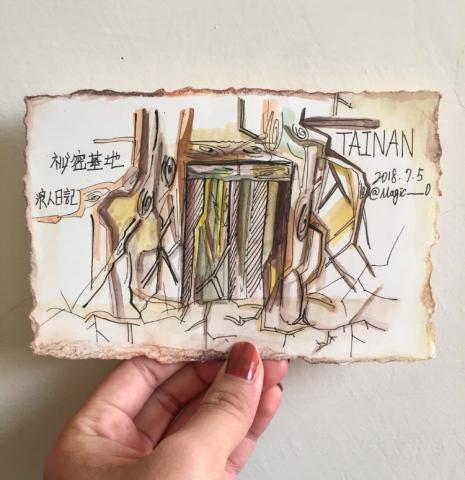 祕密基地
浪人日記
TAINAN
2018.7.5
@Magic__O